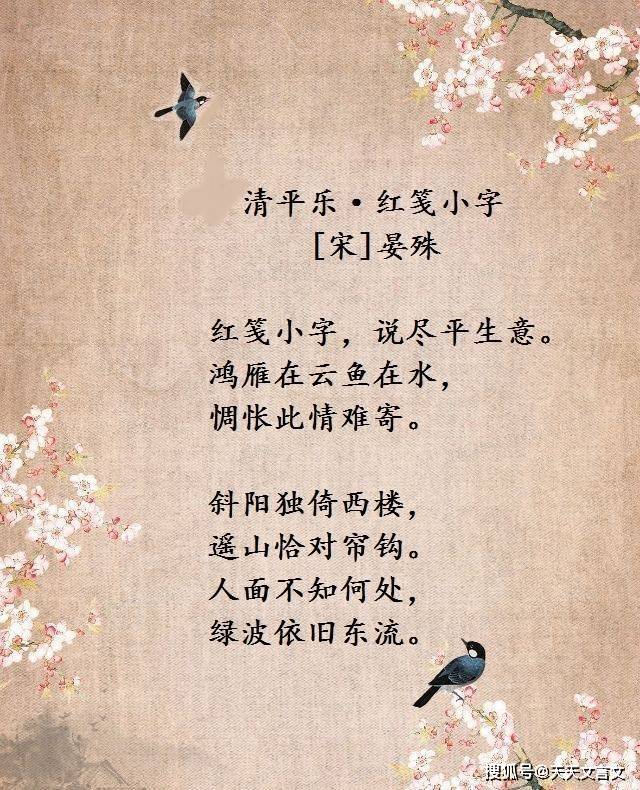 清平乐·红笺小字
[宋]晏殊
红笺小字，说尽平生意。
鸿雁在云鱼在水，
惆怅此情难寄。
斜阳独倚西楼，
遥山恰对帘钩。
人面不知何处，
绿波依旧东流。
搜狐号@天天文言文